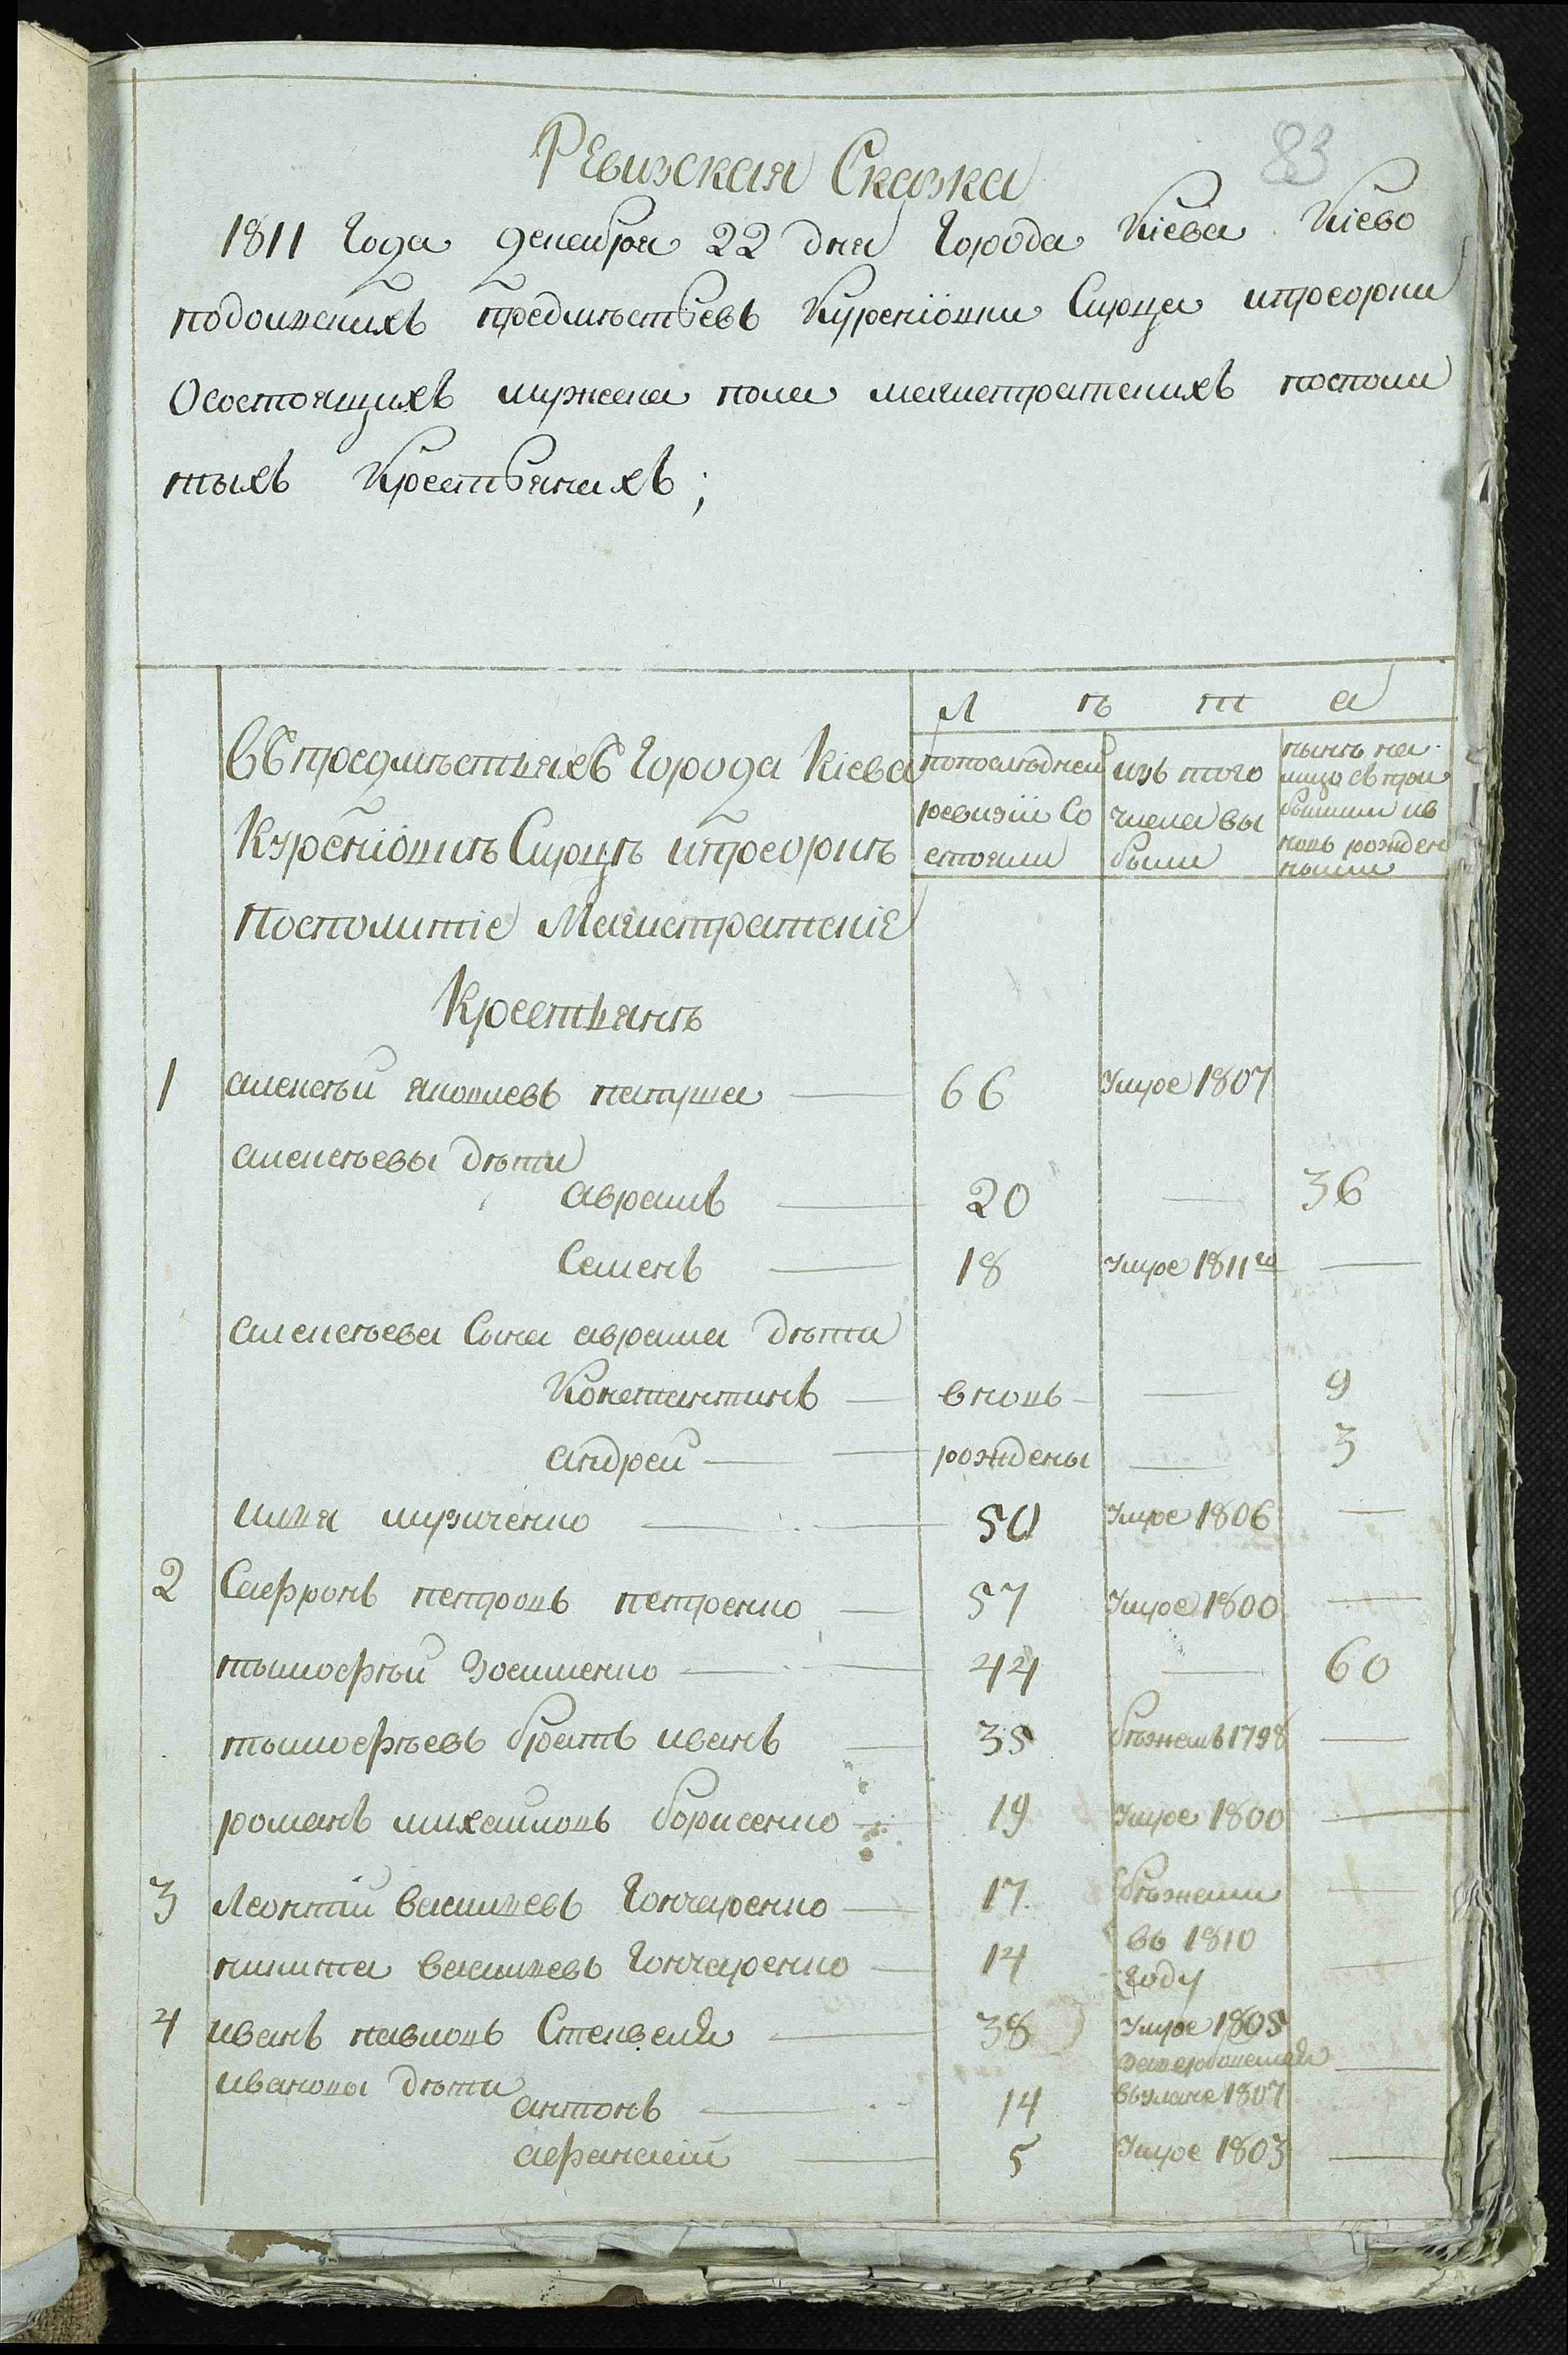 83
Ревизская Сказка
1811 Года декабря 22 дня Города Кіева Кіево
подолскихъ предмѣстьевъ Куреніовки Сирца ипреорки
О состоящихъ мужеска пола магистратскихъ посполи
тыхъ Крестьянахъ;
Л ѣ т а
въ предмѣстьяхъ Города Кіева
Куреніовкѣ Сирцѣ ипреоркѣ
Посполитіе Магистратскіе
Крестьянѣ
попослѣдней
ревизіи Со
стояли
изъ того
числа вы
были
нынѣ на
лицо съ при
былыми ив
новь рожден
ными
1 алексѣй яковлевъ папуша — 66 Умре 1807
алексѣевы дѣти
аврамъ — 20 — 36
Семенъ — 18 умре 1811го —
алексѣева Сына аврама дѣти
Константинъ — вновь — — 9
андрей — рождены — 3
илья музиченко — 50 Умре 1806 —
2 Сафронъ петровъ петренко — 57 Умре 1800 —
тымофѣй Зосименко — 44 — 60
тымофѣевъ братъ иванъ — 35 бѣжалъ 1798 —
романъ михайловъ борисенко — 19 Умре 1800 —
3 Леонтій васильевъ Гончаренко — 17 бѣжали —
никита васильевъ Гончаренко — 14 въ 1810 году —
4 иванъ павловъ — 38 Умре 1805
ивановы дѣти
антонъ — 14 1807 —
афанасій — 5 Умре 1803 —